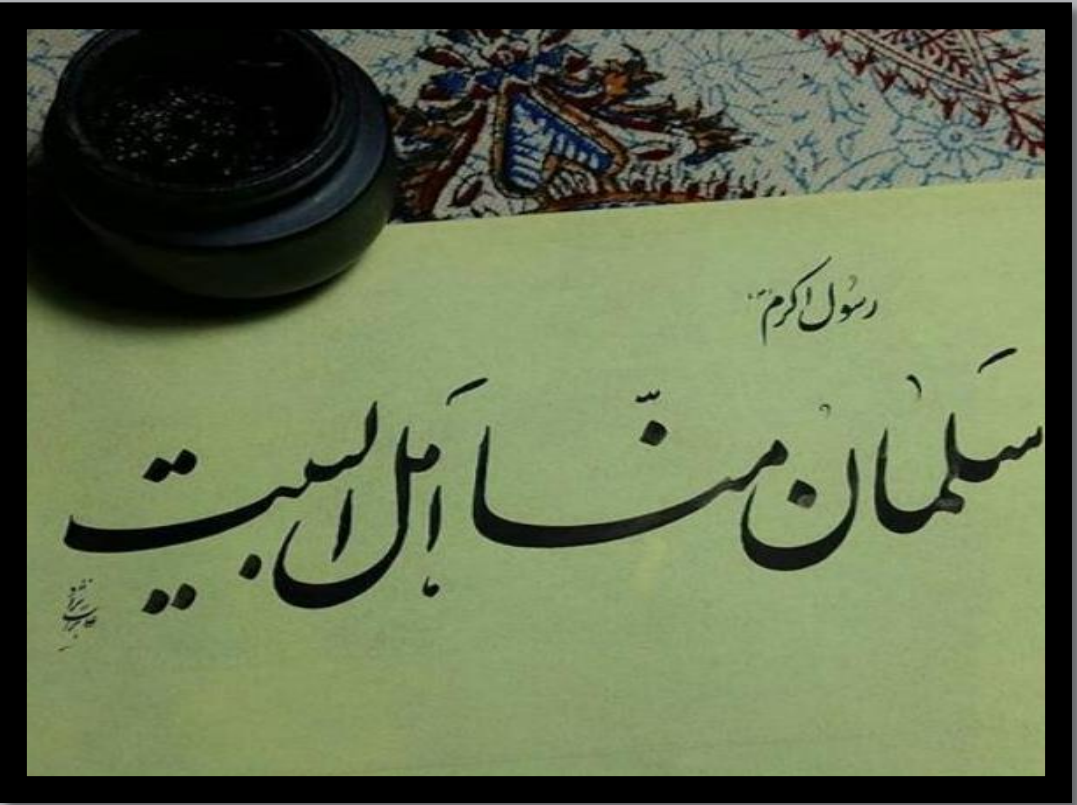 رسول اکرم
سلمان منّا اهل البیت